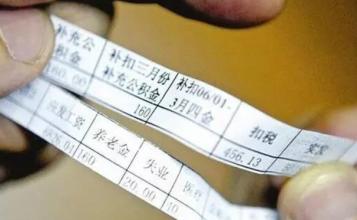 补充公
积金
160.00
补扣三月份
补充公积金
160
补扣06/01-
3月四金
扣税
456.13
应发工资
6826.01
养老金
160
失业
20.00
医疗
40